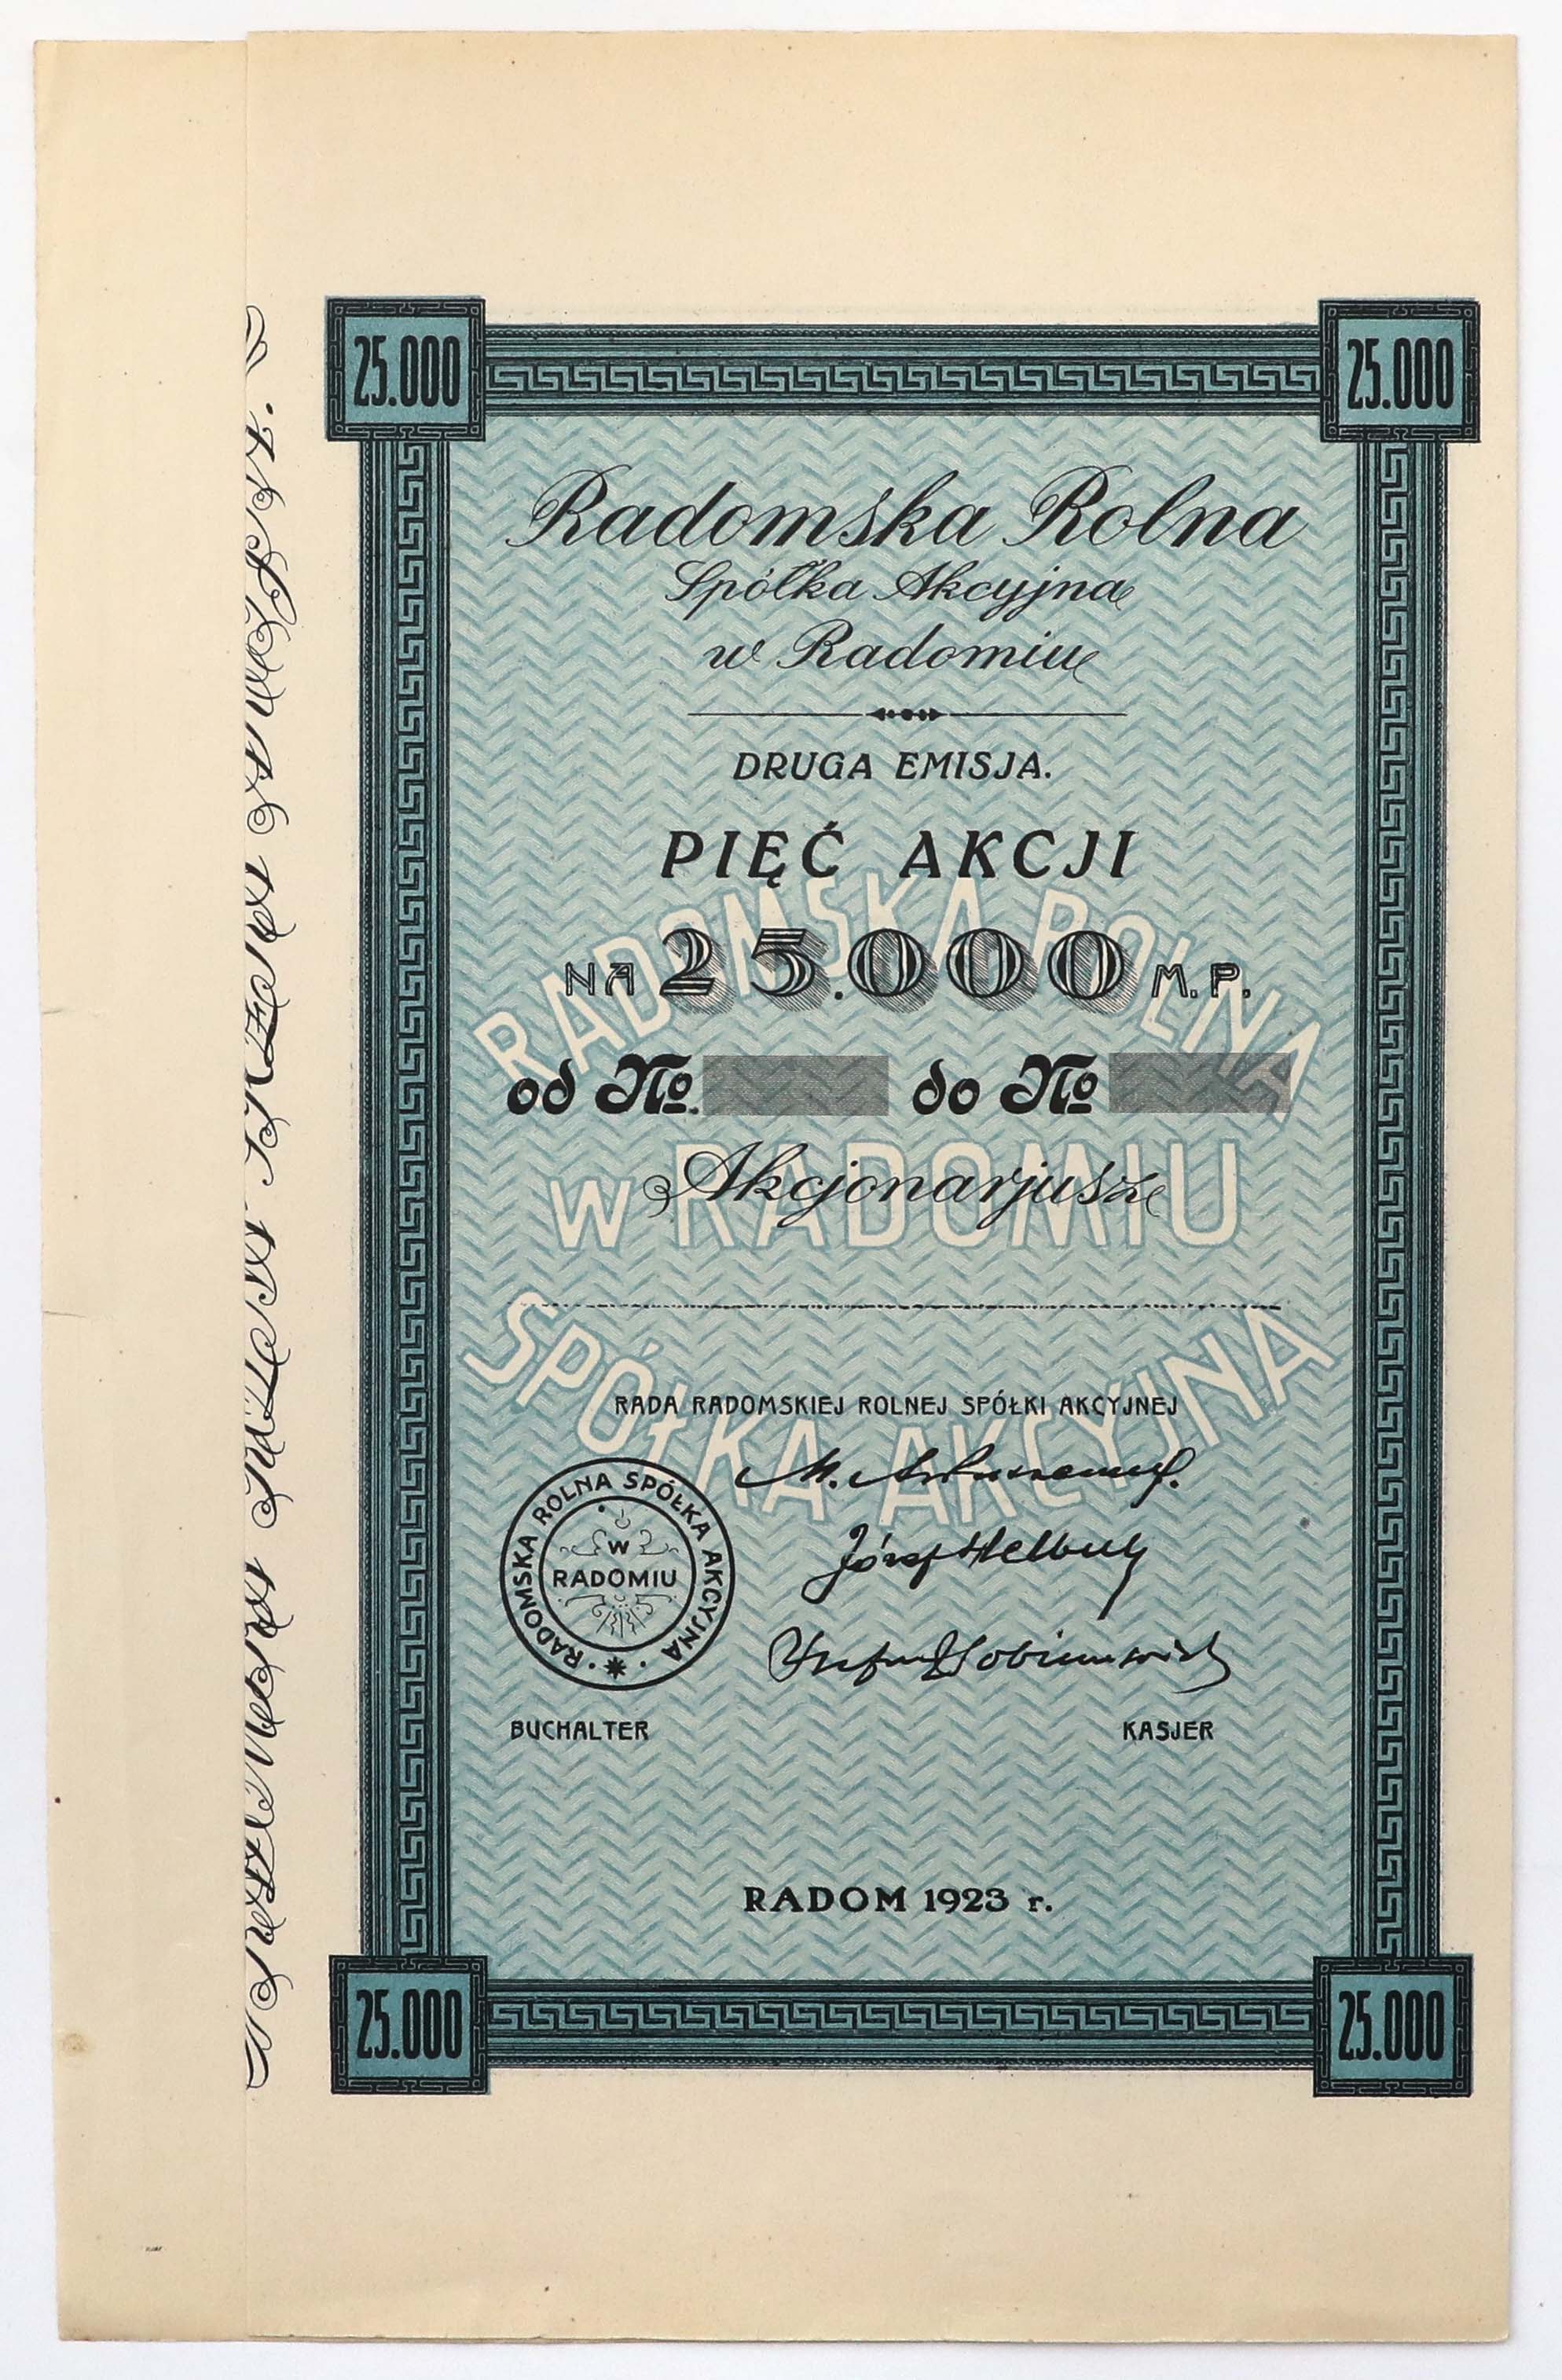 25.000
25.000
Radomska Rolna
Spółka Akcyjna
w Radomiu
DRUGA EMISJA.
PIĘĆ AKCJI
NA 25.000 M. P.
od No. do No
Akcjonarjusz
RADOMSKA ROLNA
W RADOMIU
SPÓŁKA AKCYJNA
RADA RADOMSKIEJ ROLNEJ SPÓŁKI AKCYJNEJ
Józef
RADOMSKA ROLNA SPÓŁKA AKCYJNA
W
RADOMIU
BUCHALTER
KASJER
RADOM 1923 r.
25.000
25.000